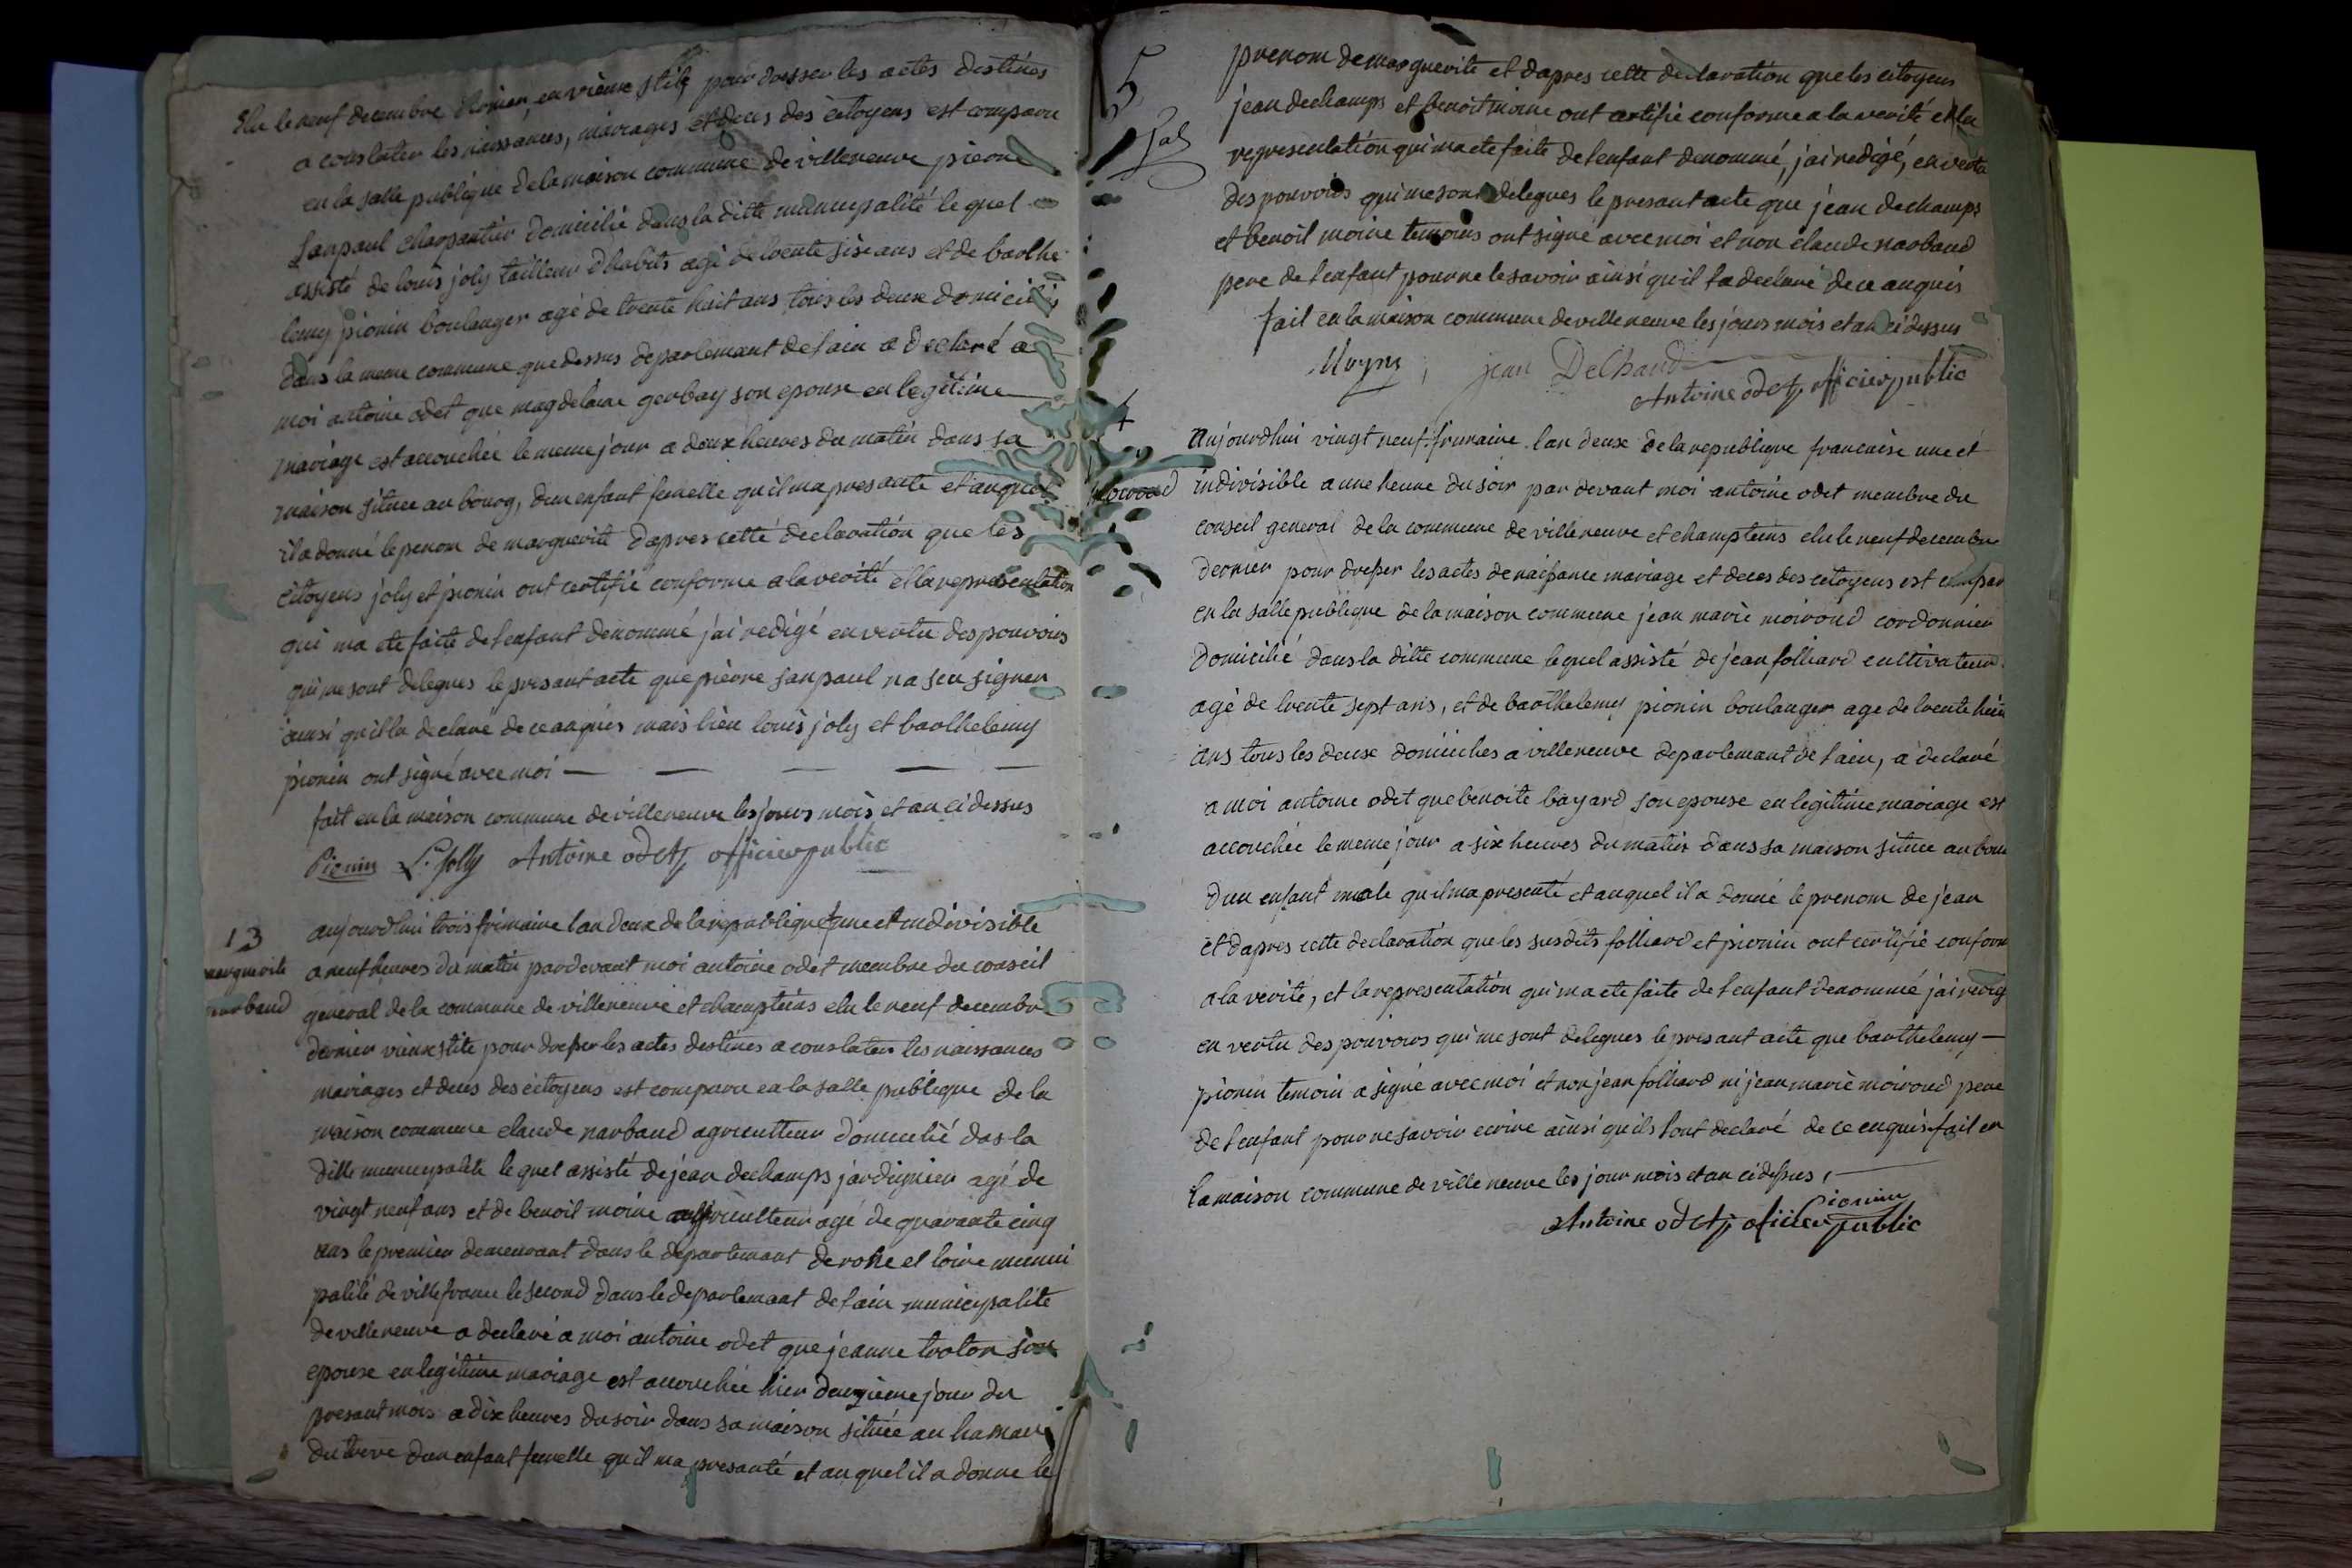 elu le neuf decembre dernier, en vieux stile pour dresser les actes destinés
a constater les naissances, mariages et deces des citoyens est comparu
en la salle publique de la maison commune de villeneuve pierre
sanpaul charpantier domicilié dans la ditte municipalité le quel
assisté de louis joly tailleur d'habits agé de trente sise ans et de barthe
lemy pionin boulanger agé de trente huit ans tous les deux domiciliés
dans la meme commune que dessus departemant de l'ain a declaré a
moi antoine odet que magdelaine gerbay son epouse en legitime
mariage est accouchée le meme jour a deux heures du matin dans sa
maison située au bourg, dun enfant femelle qu'il ma presanté et auquel
il a donné le prenom de marguerite d'apres cette declaration que les
citoyens joly et pionin ont certifié conforme a la verité et la representation
qui ma eté faite de l'enfant denommé j'ai redigé en vertu des pouvoirs
qui me sont delegues le presant acte que pierre sanpaul na seu signer
ainsi qu'il la declaré de ce anquis mais bien louis joly et barthelemy
pionin ont signé avec moi
fait en la maison commune de villeneuve les jours mois et an ci dessus
Pionin L.s Jolly Antoine odet officier public
13
marguerite
narbaud
aujourdhui trois frimaire lan deux de la republique f une et indivisible
a neuf heures du matin pardevant moi antoine odet membre du conseil
general de la commune de villeneuve et champteins elu le neuf decembre
dernier vieux stile pour dresser les actes destines a constater les naissances
mariages et deces des citoyens est comparu en la salle publique de la
maison commune claude narbaud agriculteur domicilié das la
ditte municipalité le quel assisté de jean dechamps jardignier agé de
vingt neuf ans et de benoit moine agriculteur agé de quarante cinq
ans le premier demeurant dans le departemant de rone et loire munici
palité de villefranche le second dans le departemant de l'ain municipalité
de villeneuve a declaré a moi antoine odet que jeanne troton son
epouse en legitime mariage est accouchée hier deuzieme jour du
presant mois a dix heures du soir dans sa maison située au hamau
du treve d'un enfant femelle qu'il ma presanté et auquel il a donné le
5
prenom de marguerite et d'apres cette declaration que les citoyens
jean dechamps et benoit moine ont certifié conforme a la verité et la
representation qui ma eté faite de l'enfant denommé, j'ai redigé, en vertu
des pouvoirs qui me sont delegues le presant acte que jean dechamps
et benoit moine temoins ont signé avec moi et non claude narbaud
pere de l'enfant pour ne le savoir ainsi qu'il la declaré de ce anquis
fait en la maison commune de villeneuve les jours mois et an ci dessus
jean DeChand
Antoine odet officier public
moiroud
aujourdhui vingt neuf frimaire lan deux de la republique francaise une et
indivisible a une heure du soir par devant moi antoine odet membre du
conseil general de la commune de villeneuve et champteins elu le neuf decembre
dernier pour dresser les actes de naissance mariage et deces des citoyens est compar
en la salle publique de la maison commune jean marie moiroud cordonnier
domicilié dans la ditte commune lequel assisté de jean folliard cultivateur
agé de trente sept ans, et de barthelemy pionin boulanger age de trente huit
ans tous les deux domiciliés a villeneuve departemant de l'ain, a declaré
a moi antoine odet que benoite bayard son epouse en legitime mariage est
accouchée le meme jour a six heures du matin dans sa maison située au bour
d'un enfant male qu'il ma presenté et auquel il a donné le prenom de jean
et d'apres cette declaration que les susdits folliard et pionin ont certifié conform
a la verité, et la representation qui ma eté faite de l'enfant denommé j'ai redig
en vertu des pouvoirs qui me sont delegues le presant acte que barthelemy
pionin temoin a signé avec moi et non jean folliard ni jean marie moiroud pere
de l'enfant pour ne savoir ecrire ainsi qu'ils l'ont declaré de ce enquis fait en
la maison commune de ville neuve les jour mois et an ci dessus,
Pionin
Antoine odet oficier public